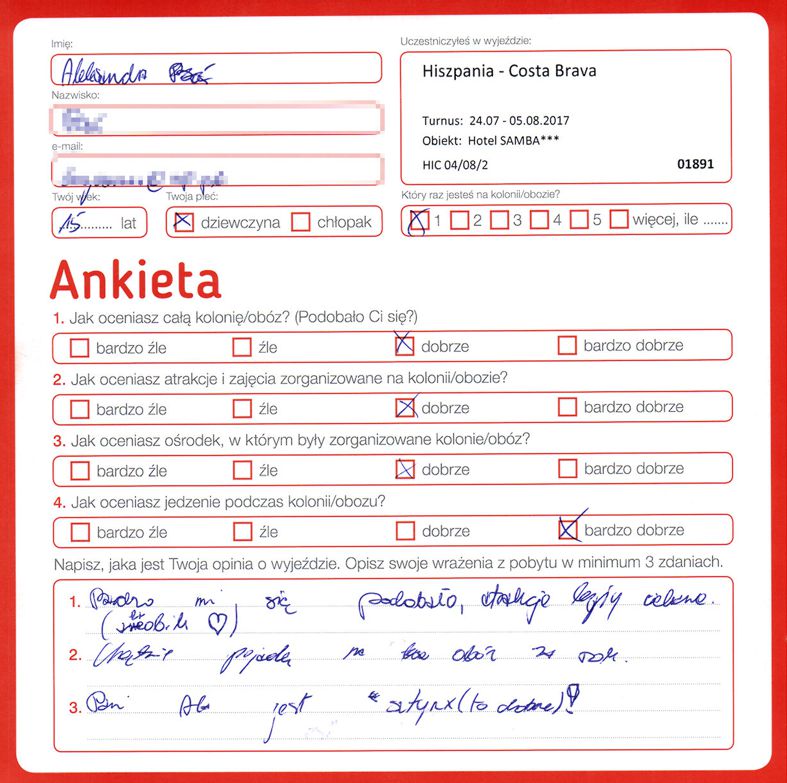 Imię:
Aleksandra
Uczestniczyłeś w wyjeździe:
Hiszpania - Costa Brava
Turnus: 24.07 - 05.08.2017
Obiekt: Hotel SAMBA***
HIC 04/08/2 01891
Nazwisko:
e-mail:
Twój wiek:
15......... lat
Twoja płeć:
dziewczyna chłopak
Który raz jesteś na kolonii/obozie?
1 2 3 4 5 więcej, ile .......
Ankieta
1. Jak oceniasz całą kolonię/obóz? (Podobało Ci się?)
bardzo źle źle dobrze bardzo dobrze
2. Jak oceniasz atrakcje i zajęcia zorganizowane na kolonii/obozie?
bardzo źle źle dobrze bardzo dobrze
3. Jak oceniasz ośrodek, w którym były zorganizowane kolonie/obóz?
bardzo źle źle dobrze bardzo dobrze
4. Jak oceniasz jedzenie podczas kolonii/obozu?
bardzo źle źle dobrze bardzo dobrze
Napisz, jaka jest Twoja opinia o wyjeździe. Opisz swoje wrażenia z pobytu w minimum 3 zdaniach.
1. Bardzo mi się podobało, atrakcje były
2. Chętnie pojadę na obóz za rok.
3. Pani Ala jest sztynx (to dobrze)!